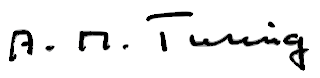 A. M. Turing